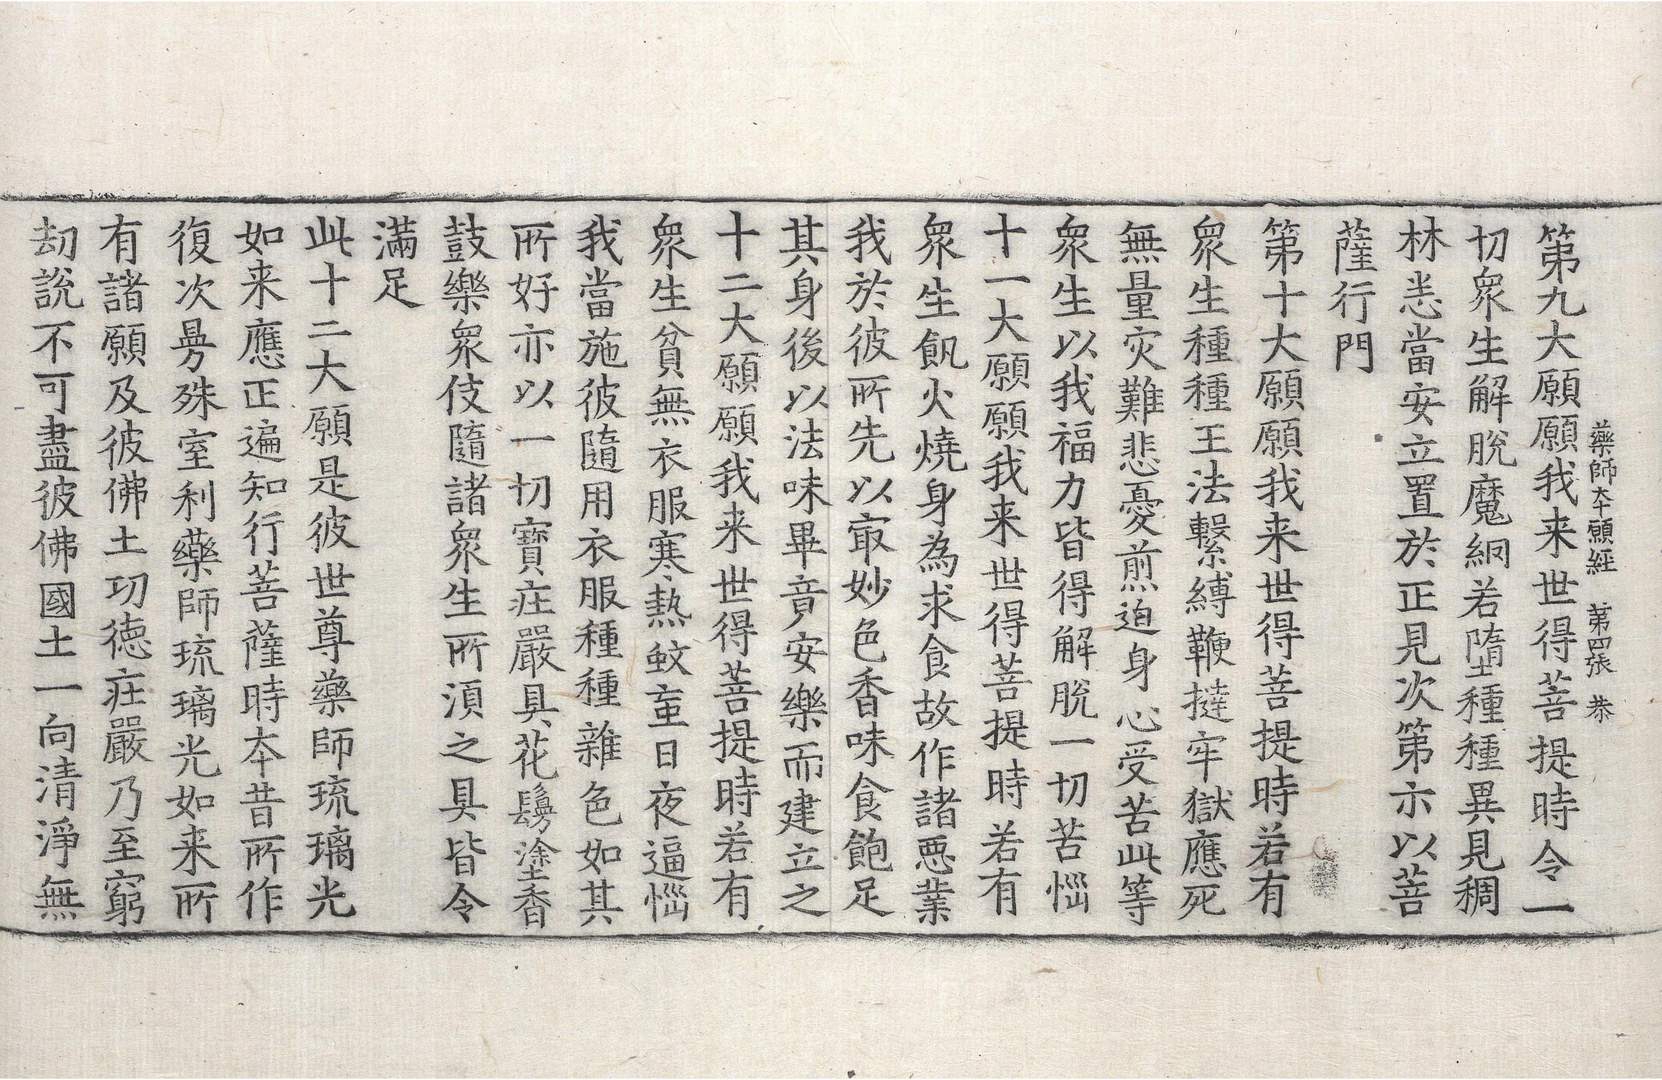 藥師本願經 第四張 恭
第九大願願我来世得菩提時令一
切衆生解脫魔網若墮種種異見稠
林悉當安立置於正見次第示以菩
薩行門
第十大願願我来世得菩提時若有
衆生種種王法繫縛鞭撻牢獄應死
無量灾難悲憂煎迫身心受苦此等
衆生以我福力皆得解脫一切苦惱
十一大願願我来世得菩提時若有
衆生飢火燒身為求食故作諸惡業
我於彼所先以㝡妙色香味食飽足
其身後以法味畢竟安樂而建立之
十二大願願我来世得菩提時若有
衆生貧無衣服寒熱蚊虻日夜逼惱
我當施彼隨用衣服種種雜色如其
所好亦以一切寶庄嚴具花鬘塗香
鼓樂衆伎隨諸衆生所須之具皆令
滿足
此十二大願是彼世尊藥師琉璃光
如来應正遍知行菩薩時本昔所作
復次曼殊室利藥師琉璃光如来所
有諸願及彼佛土功德庄嚴乃至窮
劫說不可盡彼佛國土一向清淨無